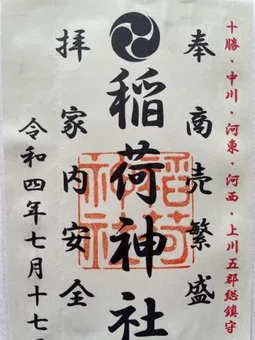 十勝・中川・河東・河西・上川五郡総鎮守
奉
商売繁盛
稲荷神社
稲荷神社
拝
家内安全
令和四年七月十七